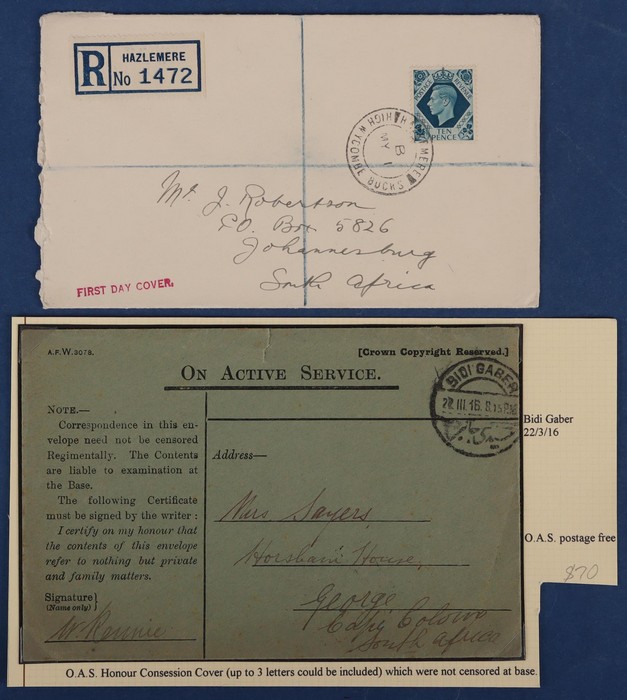 R
HAZLEMERE
No 1472
POSTAGE REVENUE
TEN
PENCE
HAZLEMERE HIGH WYCOMBE BUCKS
B
MY
Mr. J. Robertson
P.O. Box 5826
Johannesburg
South Africa
FIRST DAY COVER.
A.F.W.3078.
[Crown Copyright Reserved.]
ON ACTIVE SERVICE.
NOTE.—
Correspondence in this en-
velope need not be censored
Regimentally. The Contents
are liable to examination at
the Base.
The following Certificate
must be signed by the writer :
I certify on my honour that
the contents of this envelope
refer to nothing but private
and family matters.
Signature}
(Name only)
W. Rennie
Address—
Mrs Sayers
Horsham House,
George
Cape Colony
South Africa
SIDI GABER
22.III.16. 8.15 P.M
Bidi Gaber
22/3/16
O.A.S. postage free
$70
O.A.S. Honour Consession Cover (up to 3 letters could be included) which were not censored at base.